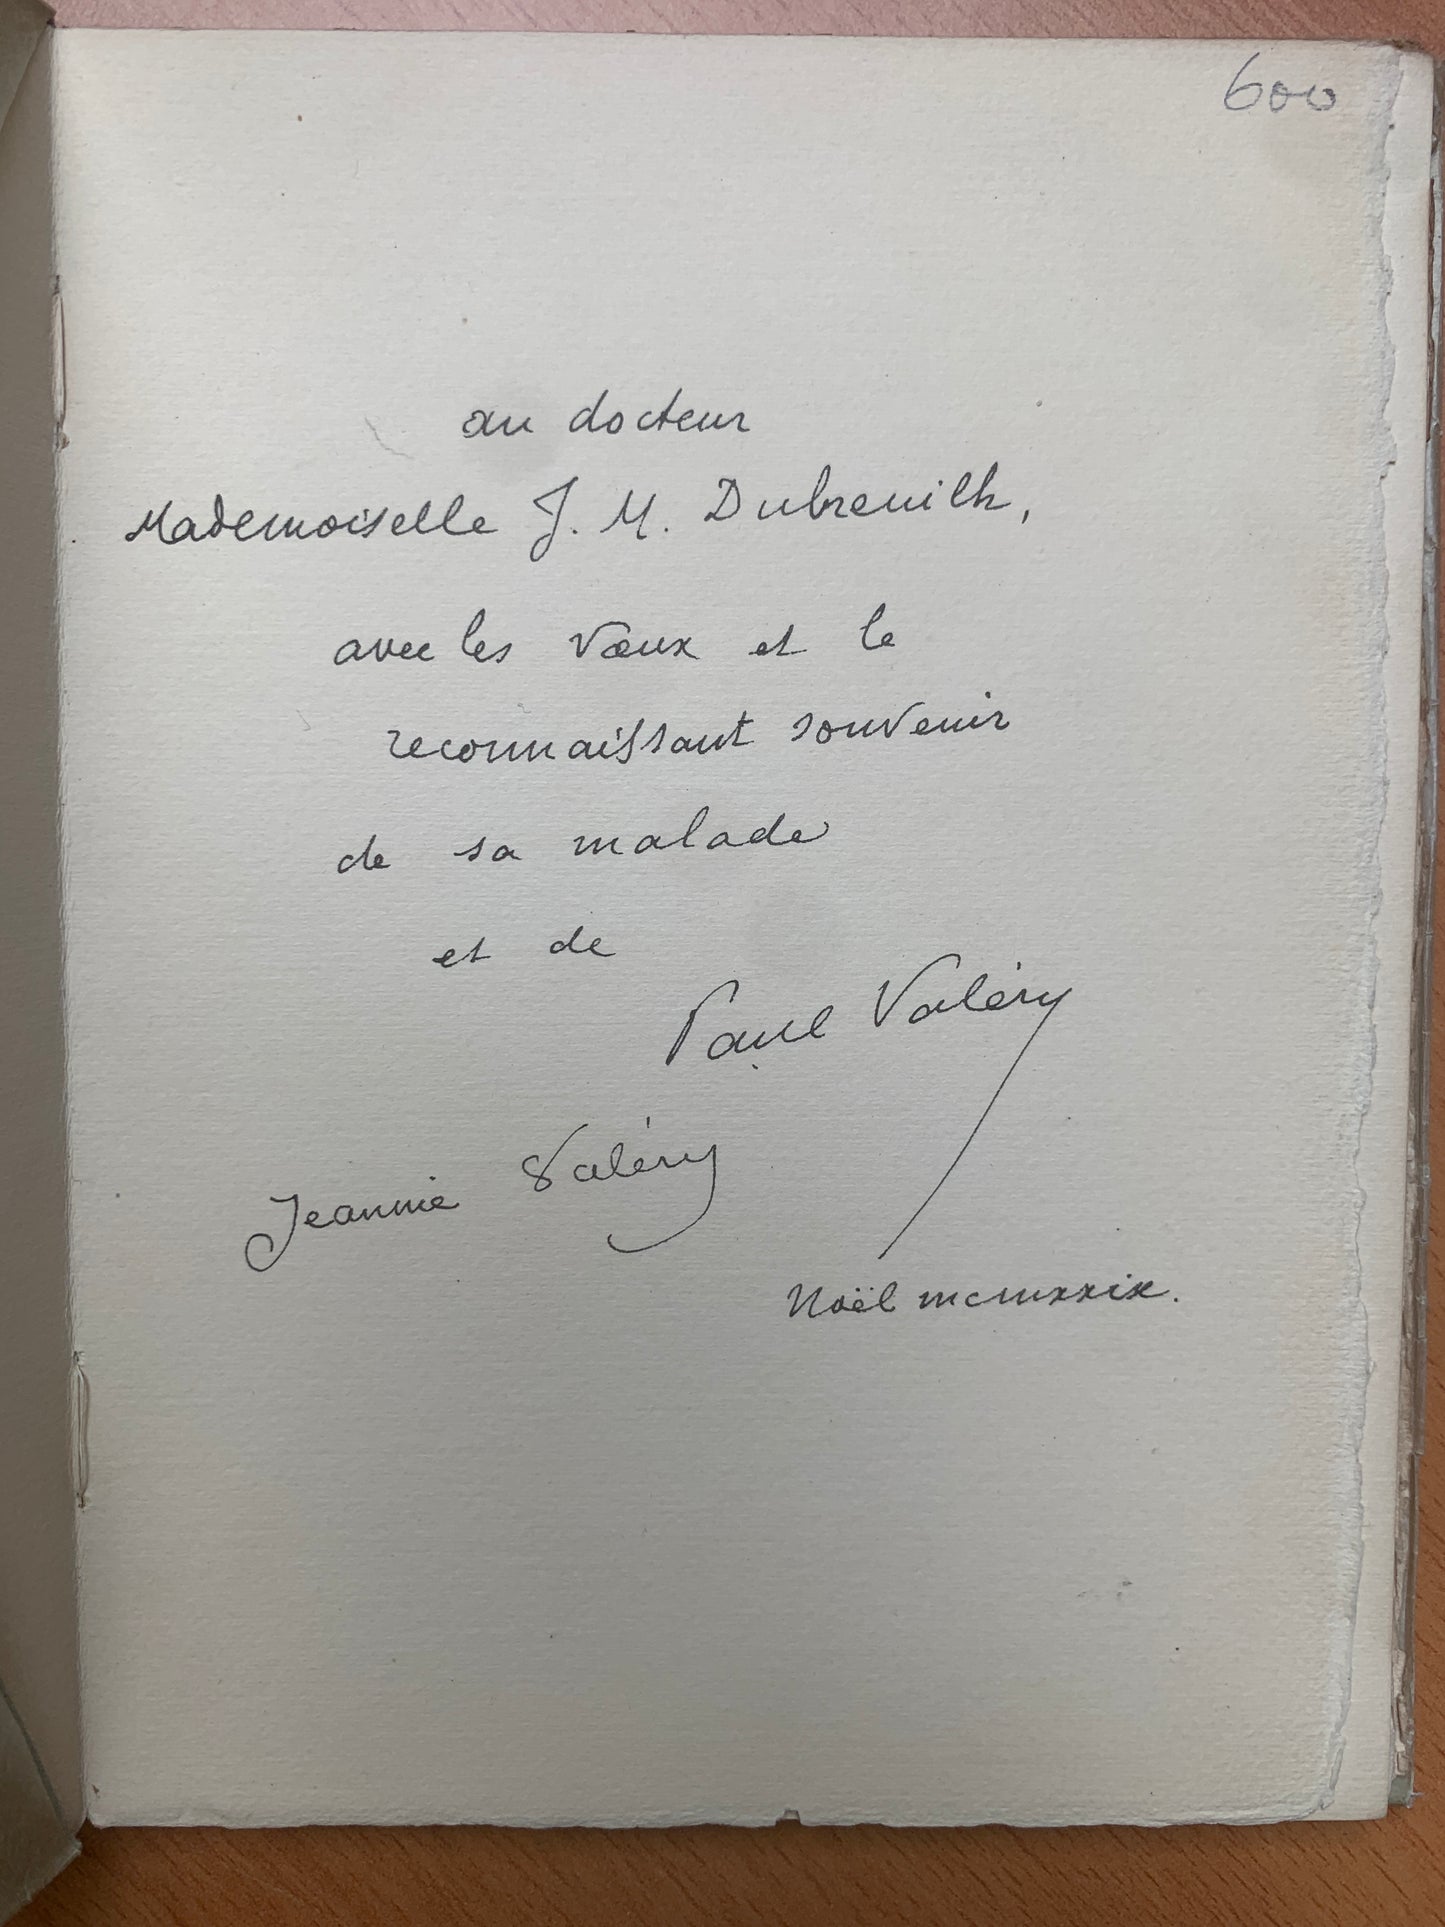 600
au docteur
Mademoiselle J. M. Dubreuilh,
avec les vœux et le
reconnaissant souvenir
de sa malade
et de
Paul Valéry
Jeannie Valéry
Noël mcmxxix.